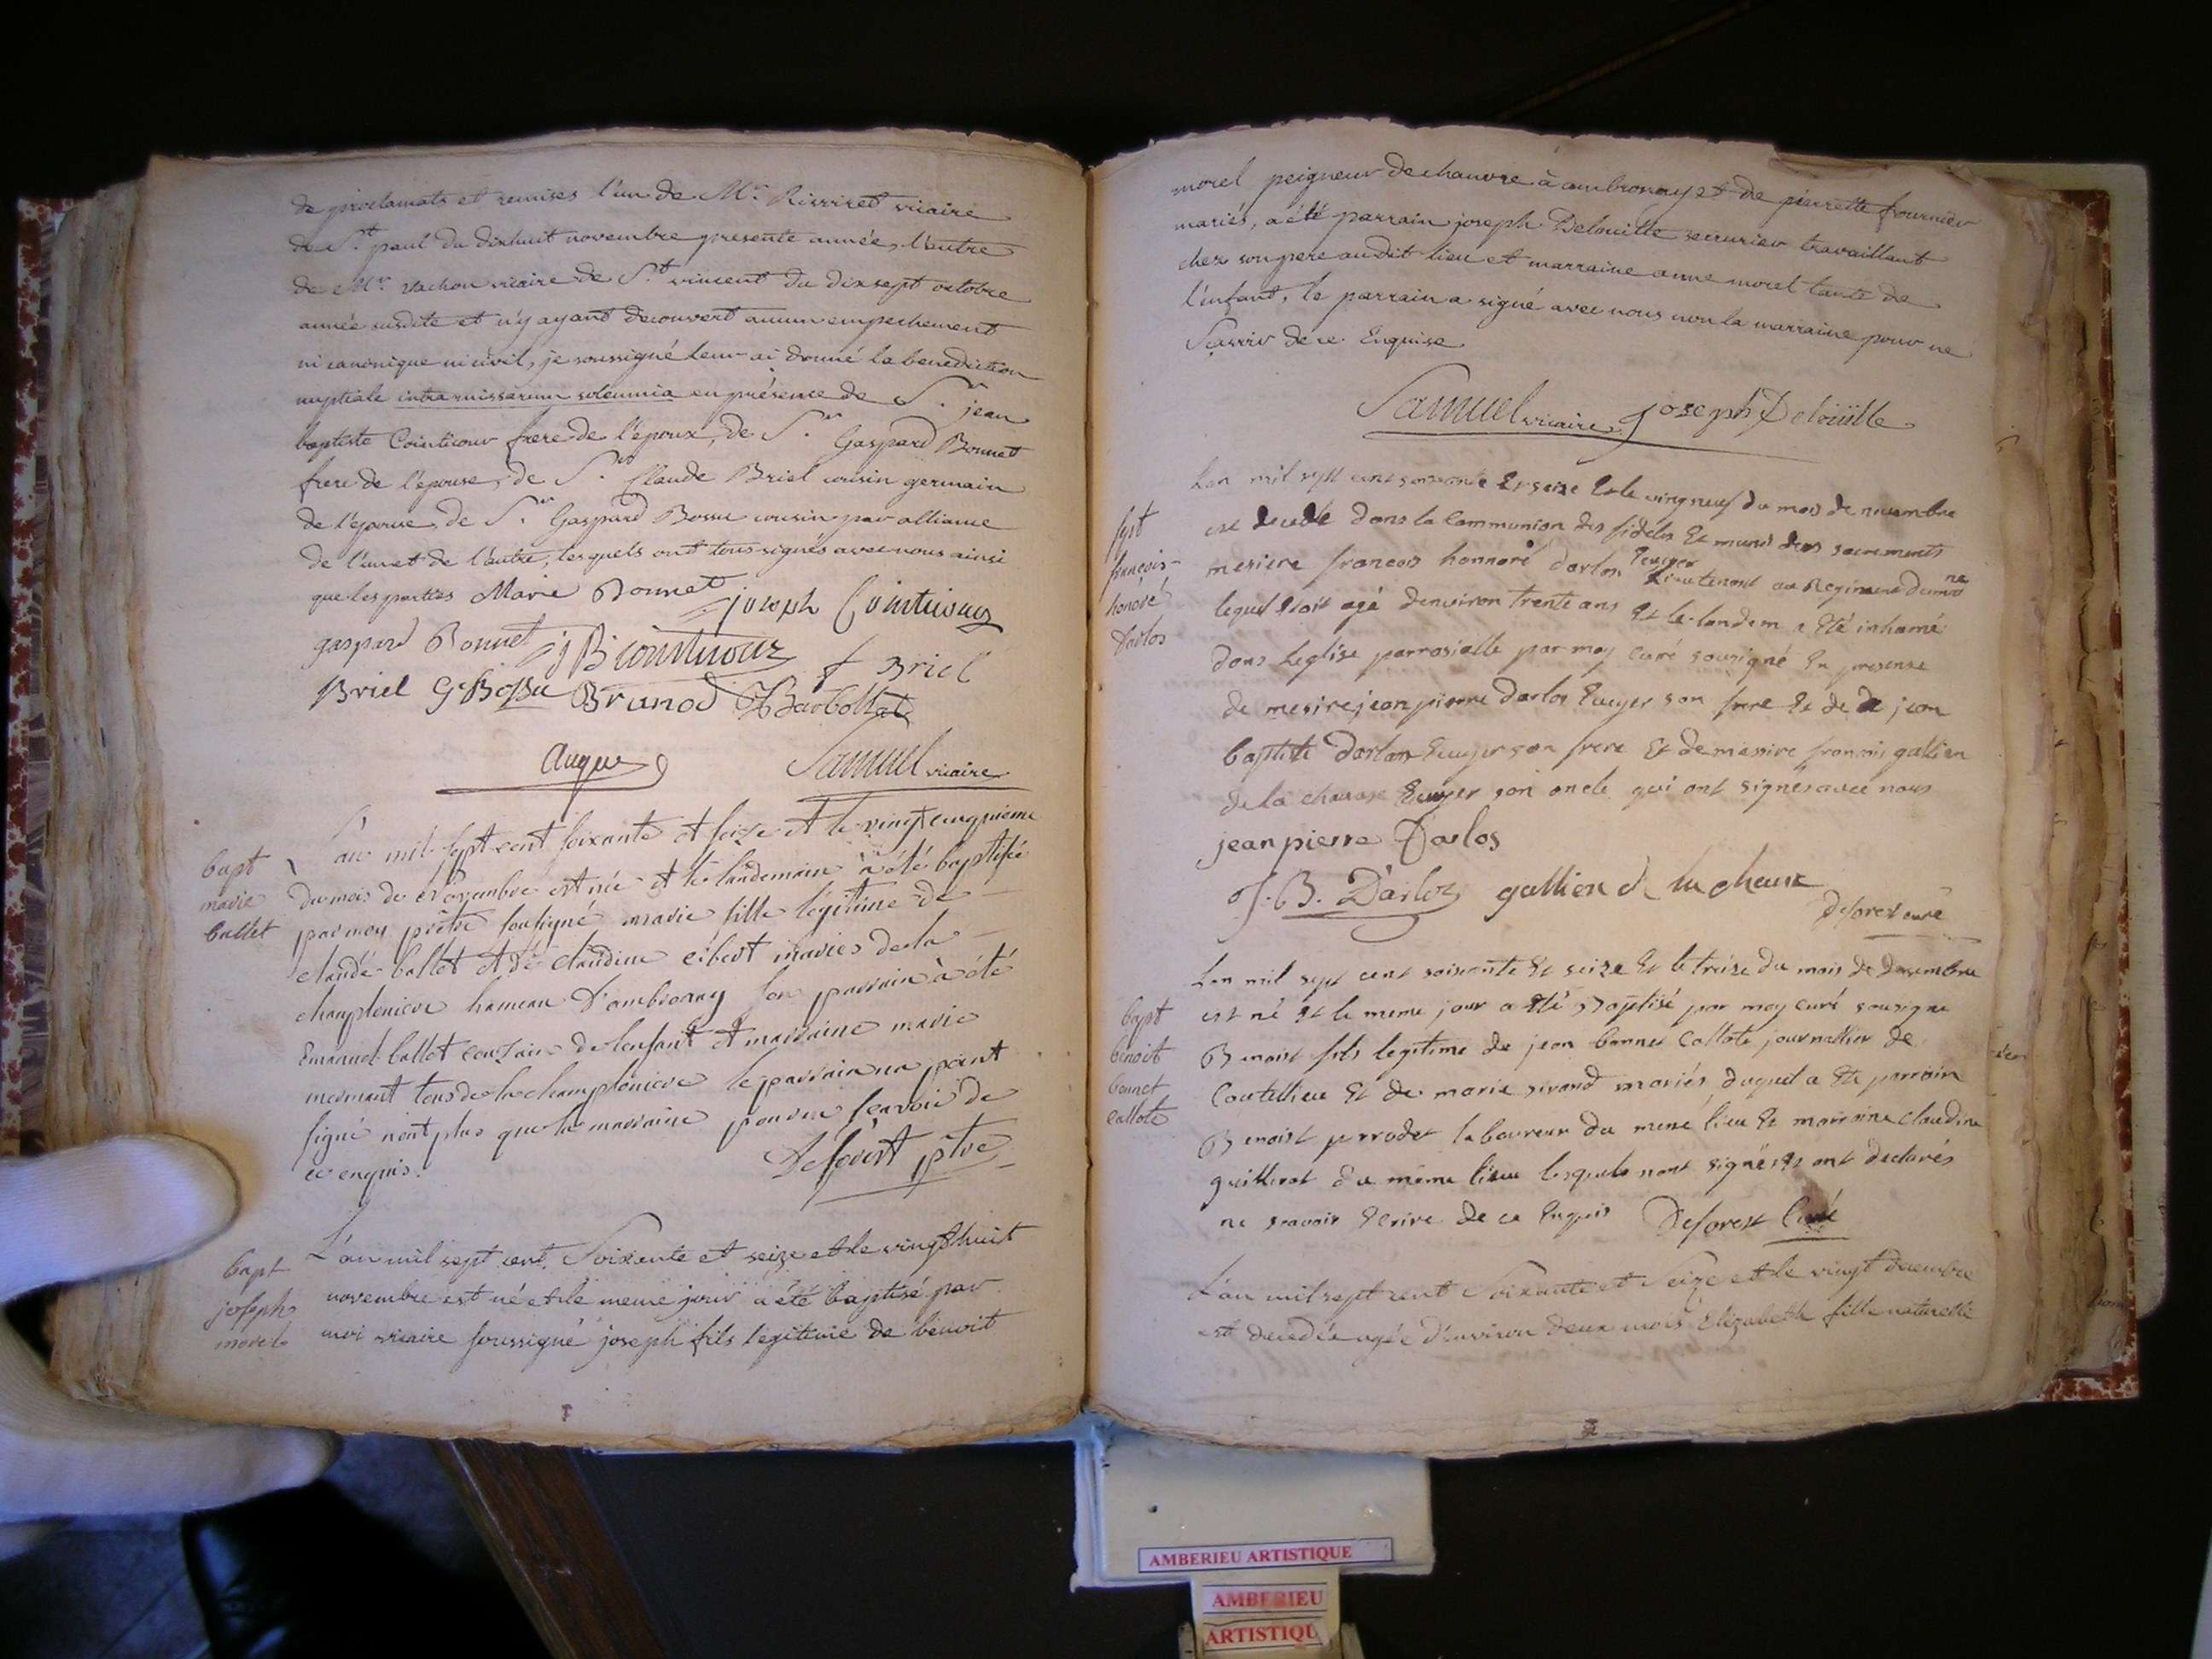 de proclamats et remises l'un de Mr. Rivriret vicaire
de St. paul du dixhuit novembre presente année, l'autre
de Mr. vachon vicaire de St. vincent du dix sept octobre
année susdite et n'y ayant decouvert aucun empechement
ni canonique ni civil, je soussigné leur ai donné la benediction
nuptiale intra missarum solemnia en présence de Sr. jean
baptiste Cointicour frere de l'époux, de Sr. Gaspard Bonnet
frere de l'épouse, de Sr. Claude Briel cousin germain
de l'épouse, de Sr. Gaspard Bossu cousin par alliance
de l'un et de l'autre, lesquels ont tous signés avec nous ainsi
que les parties Marie Bonnet joseph Cointicour
gaspard Bonnet j B Cointicour f Briel
Briel G Bossu Brunod
Auger Samuel vicaire
bapt
marie
ballet
L'an mil sept cent soixante et seize et le vingt cinquieme
du mois de Novembre est née et le landemain à été baptisée
par moy prêtre soussigné marie fille legitime de
claude ballet et de claudine cibert mariés de la
champleniere hameau d'ambronay son parrain à été
Emanuel ballet de lenfant et marraine marie
mermant tous de la champleniere le parrain na point
signé nont plus que la marraine pour ne scavoir de
ce enquis. Deforest ptre
bapt
joseph
morel
L'an mil sept cent Soixante et seize et le vingt huit
novembre est né et le meme jour a été baptisé par
moi vicaire soussigné joseph fils legitime de benoit
morel peigneur de chanvre à ambronay et de pierrette fournier
mariés, a été parrain joseph Delouille serrurier travaillant
chez son pere audit lieu et marraine anne morel tante de
l'enfant, le parrain a signé avec nous non la marraine pour ne
Sçavoir de ce Enquise
Samuel vicaire joseph Delouille
sept
françois
honoré
darlos
Lan mil sept cent soixante Et seize Et le ving neuf du mois de novembre
est decedé dans la Communion des fideles Et munis des sacrements
mesire francois honnoré darlos Ecuyer Lieutenant au Regiment
lequel Etoit agé denviron trente ans Et le landem a Eté inhumé
dans Leglise parrosialle par moy curé sousigné En presense
de mesire jean pierre darlos Ecuyer son frere Et de jean
baptiste darlos Ecuyer son frere Et de messire francois gallien
de la chaux Ecuyer son oncle qui ont signés avec nous
jean pierre Darlos
J. B. Darloz gallien de la chaux
Deforest curé
bapt
benoit
bonnet
callote
Lan mil sept cent soixante Et seize Et le treize du mois de decembre
est né Et le meme jour a Eté Baptisé par moy curé sousigné
Benoist fils legitime de jean bonnet Callote journallier de
Coutelieu Et de marie sivand mariés, duquel a Eté parrain
Benoist perrodet laboureur du meme lieu Et marraine Claudine
guillerot du même lieu lesquels nont signés Et ont declarés
ne scavoir Ecrire de ce Enquis Deforest Curé
L'an mil sept cent Soixante et Seize et le vingt decembre
est decedée agée d'environ deux mois Elizabeth fille naturelle
AMBERIEU ARTISTIQUE
AMBERIEU
ARTISTIQU